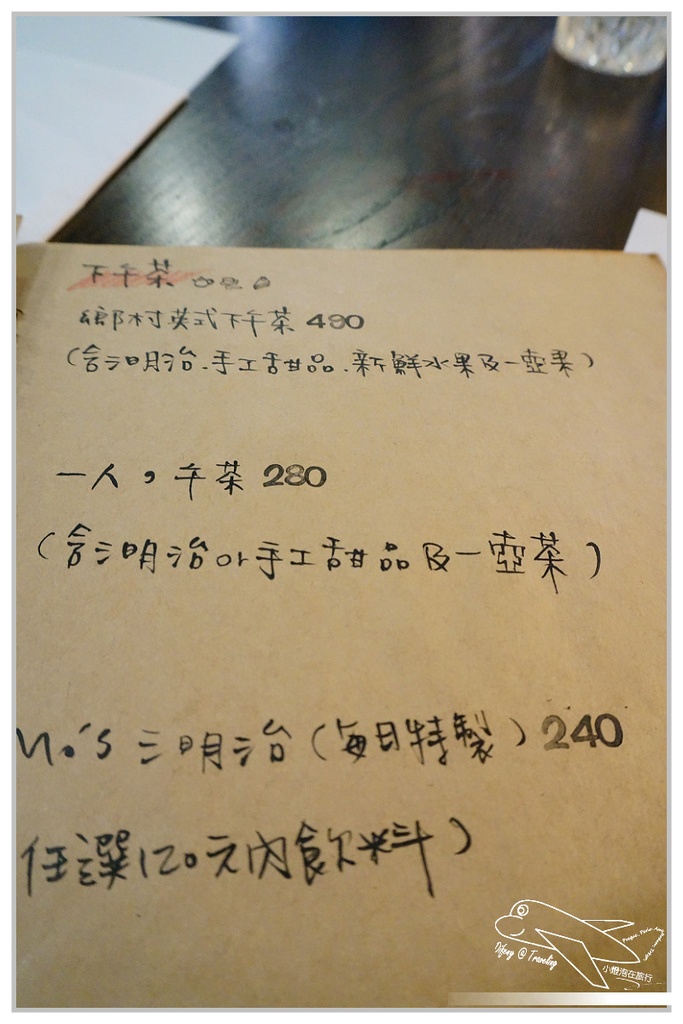 下午茶
鄉村英式下午茶 490
(含三明治.手工甜品.新鮮水果及一壺茶)
一人,午茶 280
(含三明治or手工甜品及一壺茶)
No's 三明治(每日特製)240
任選120元內飲料)
Difeny @ Traveling
小燈泡在旅行